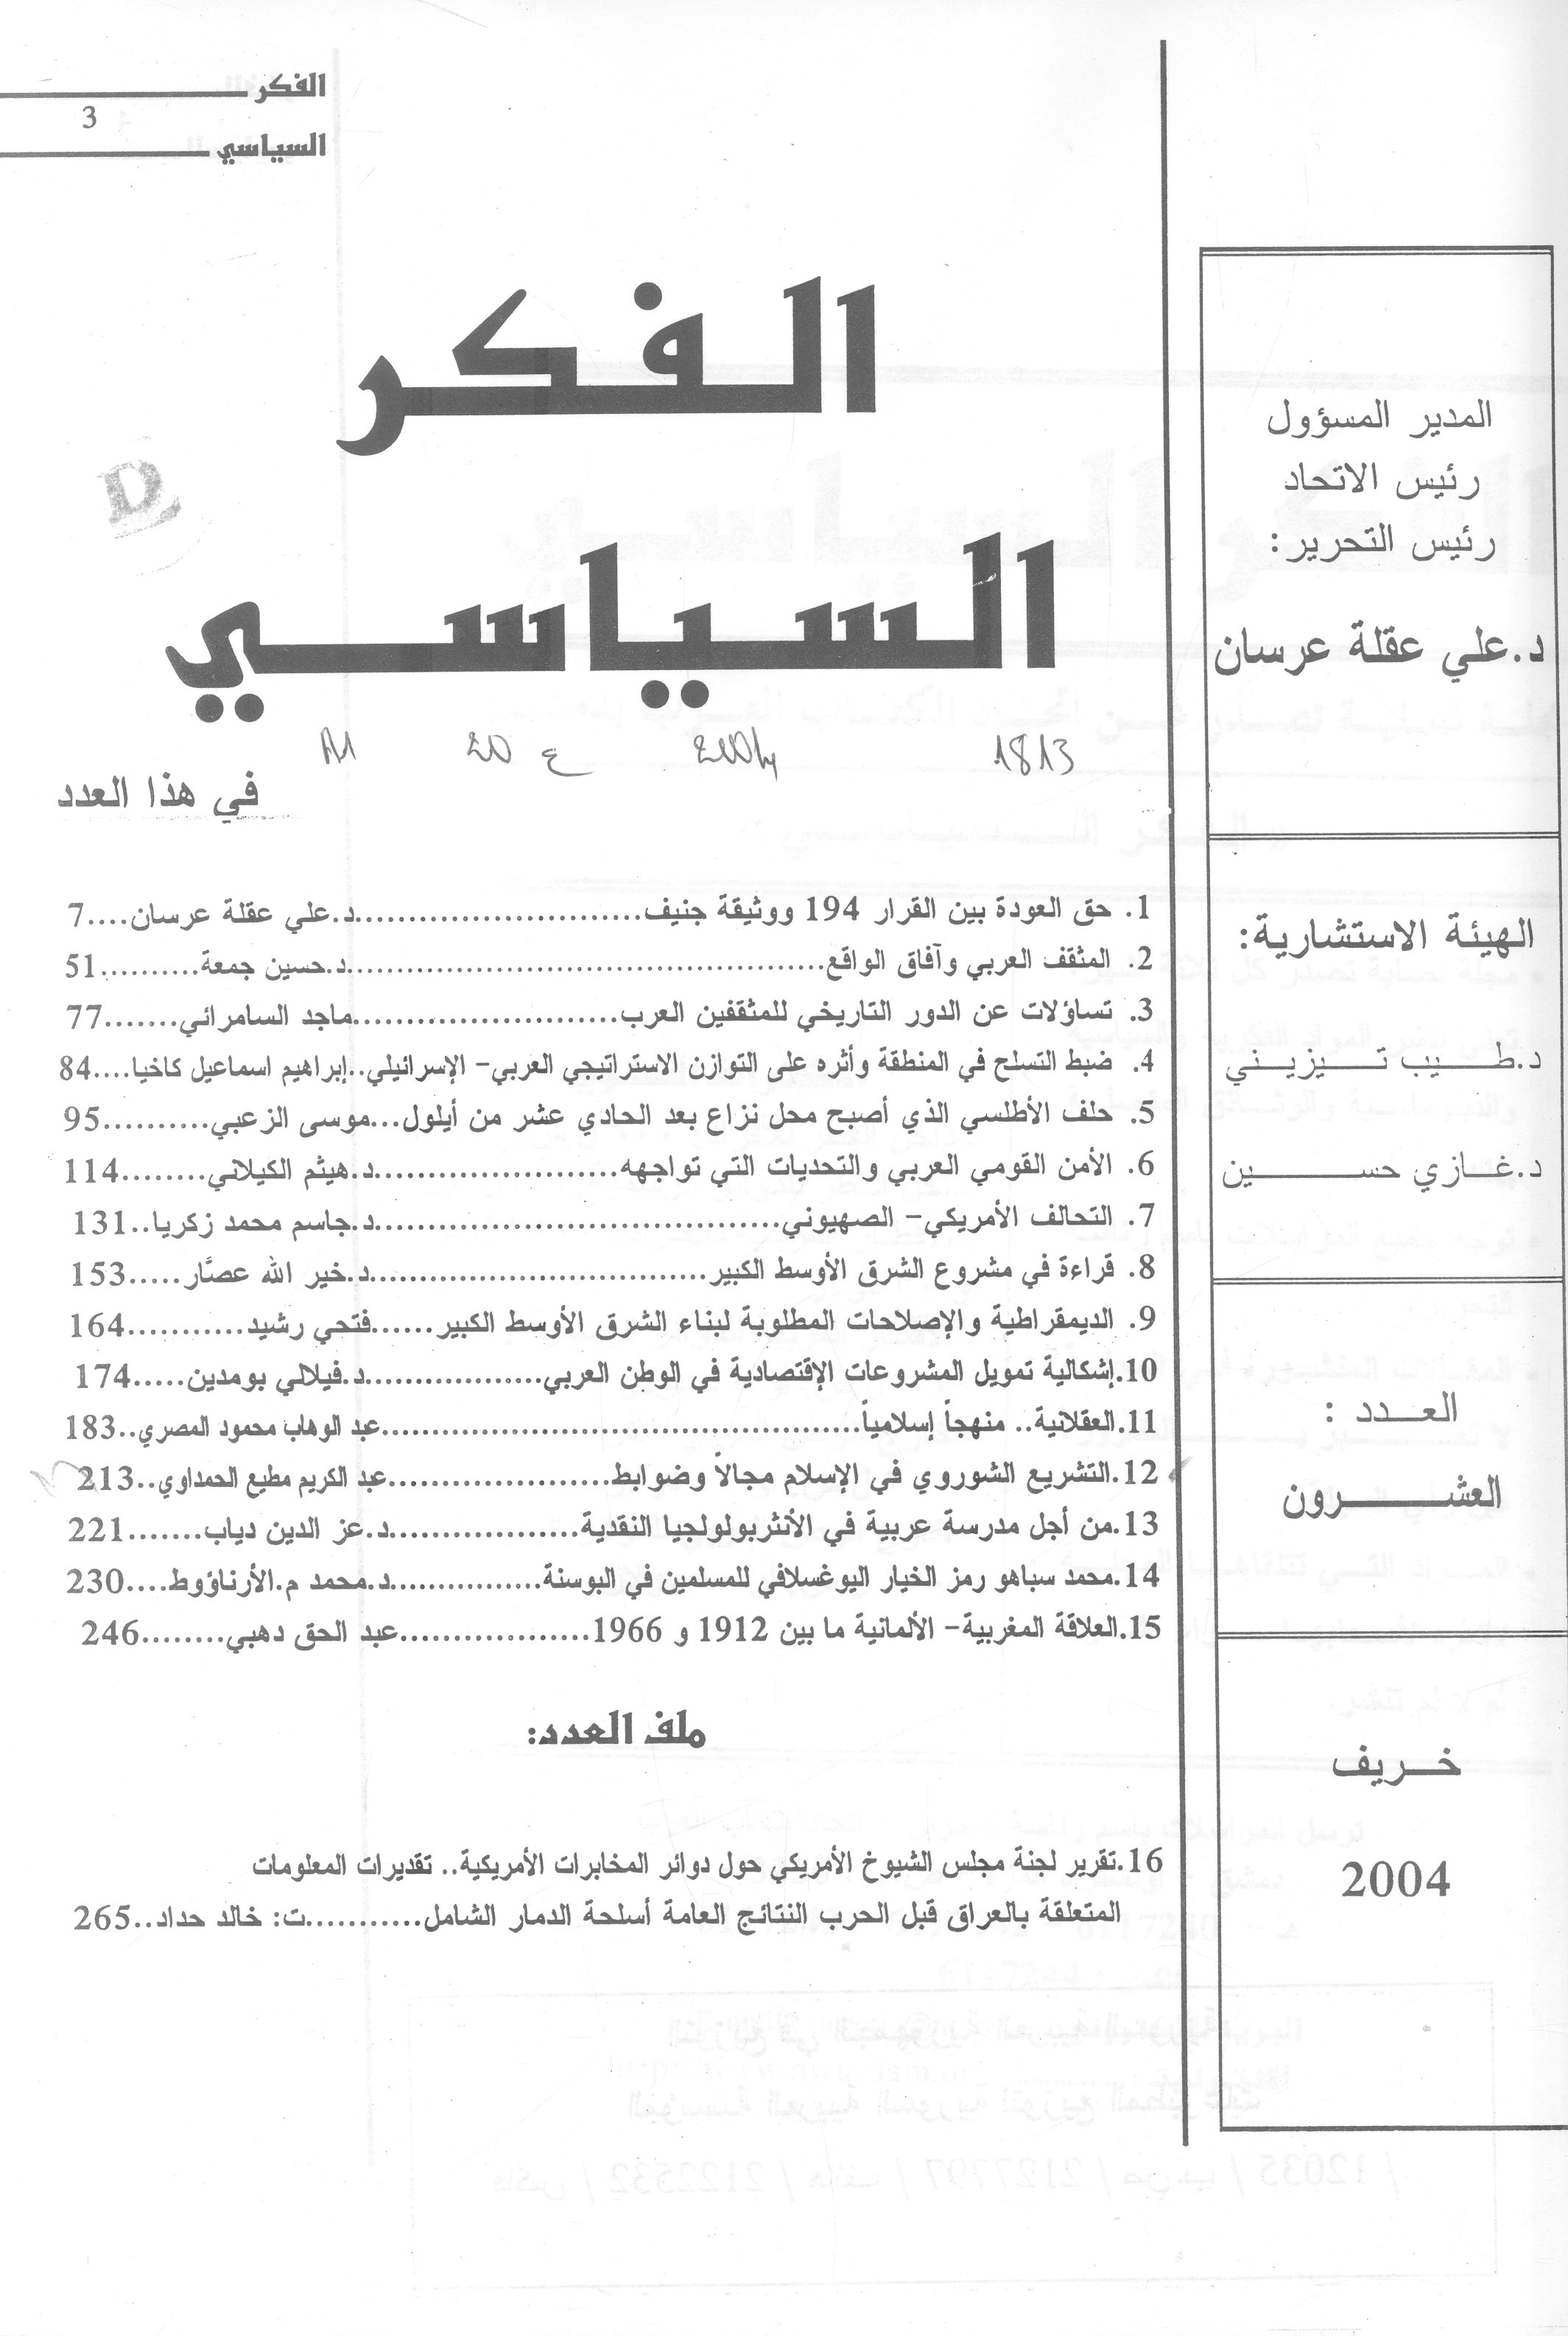 الفكر
3
السياسي
الفكر
السياسي
1813 2004 ع 20
في هذا العدد
1. حق العودة بين القرار 194 ووثيقة جنيف............................د.علي عقلة عرسان....7
2. المثقف العربي وآفاق الواقع...............................................د.حسين جمعة..........51
3. تساؤلات عن الدور التاريخي للمثقفين العرب..........................ماجد السامرائي.......77
4. ضبط التسلح في المنطقة وأثره على التوازن الاستراتيجي العربي- الإسرائيلي..إبراهيم اسماعيل كاخيا....84
5. حلف الأطلسي الذي أصبح محل نزاع بعد الحادي عشر من أيلول...موسى الزعبي..........95
6. الأمن القومي العربي والتحديات التي تواجهه........................د.هيثم الكيلاني........114
7. التحالف الأمريكي- الصهيوني........................................د.جاسم محمد زكريا..131
8. قراءة في مشروع الشرق الأوسط الكبير.................................د.خير الله عصَّار.....153
9. الديمقراطية والإصلاحات المطلوبة لبناء الشرق الأوسط الكبير......فتحي رشيد...........164
10.إشكالية تمويل المشروعات الإقتصادية في الوطن العربي.................د.فيلالي بومدين.....174
11.العقلانية.. منهجاً إسلامياً...............................................عبد الوهاب محمود المصري..183
12.التشريع الشوروي في الإسلام مجالاً وضوابط......................عبد الكريم مطيع الحمداوي..213
13.من أجل مدرسة عربية في الأنثربولولجيا النقدية...................د.عز الدين دياب.......221
14.محمد سباهو رمز الخيار اليوغسلافي للمسلمين في البوسنة...............د.محمد م.الأرناؤوط....230
15.العلاقة المغربية- الألمانية ما بين 1912 و 1966...................عبد الحق دهبي........246
ملف العدد:
16.تقرير لجنة مجلس الشيوخ الأمريكي حول دوائر المخابرات الأمريكية.. تقديرات المعلومات
المتعلقة بالعراق قبل الحرب النتائج العامة أسلحة الدمار الشامل...........ت: خالد حداد..265
المدير المسؤول
رئيس الاتحاد
رئيس التحرير:
د.علي عقلة عرسان
الهيئة الاستشارية:
د.طيب تيزيني
د.غازي حسين
العدد :
العشرون
خريف
2004